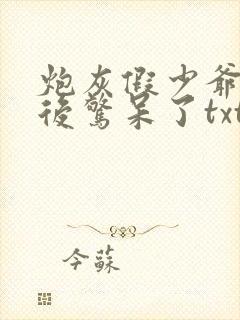 炮灰假少爷
后惊呆了txt
今蘇